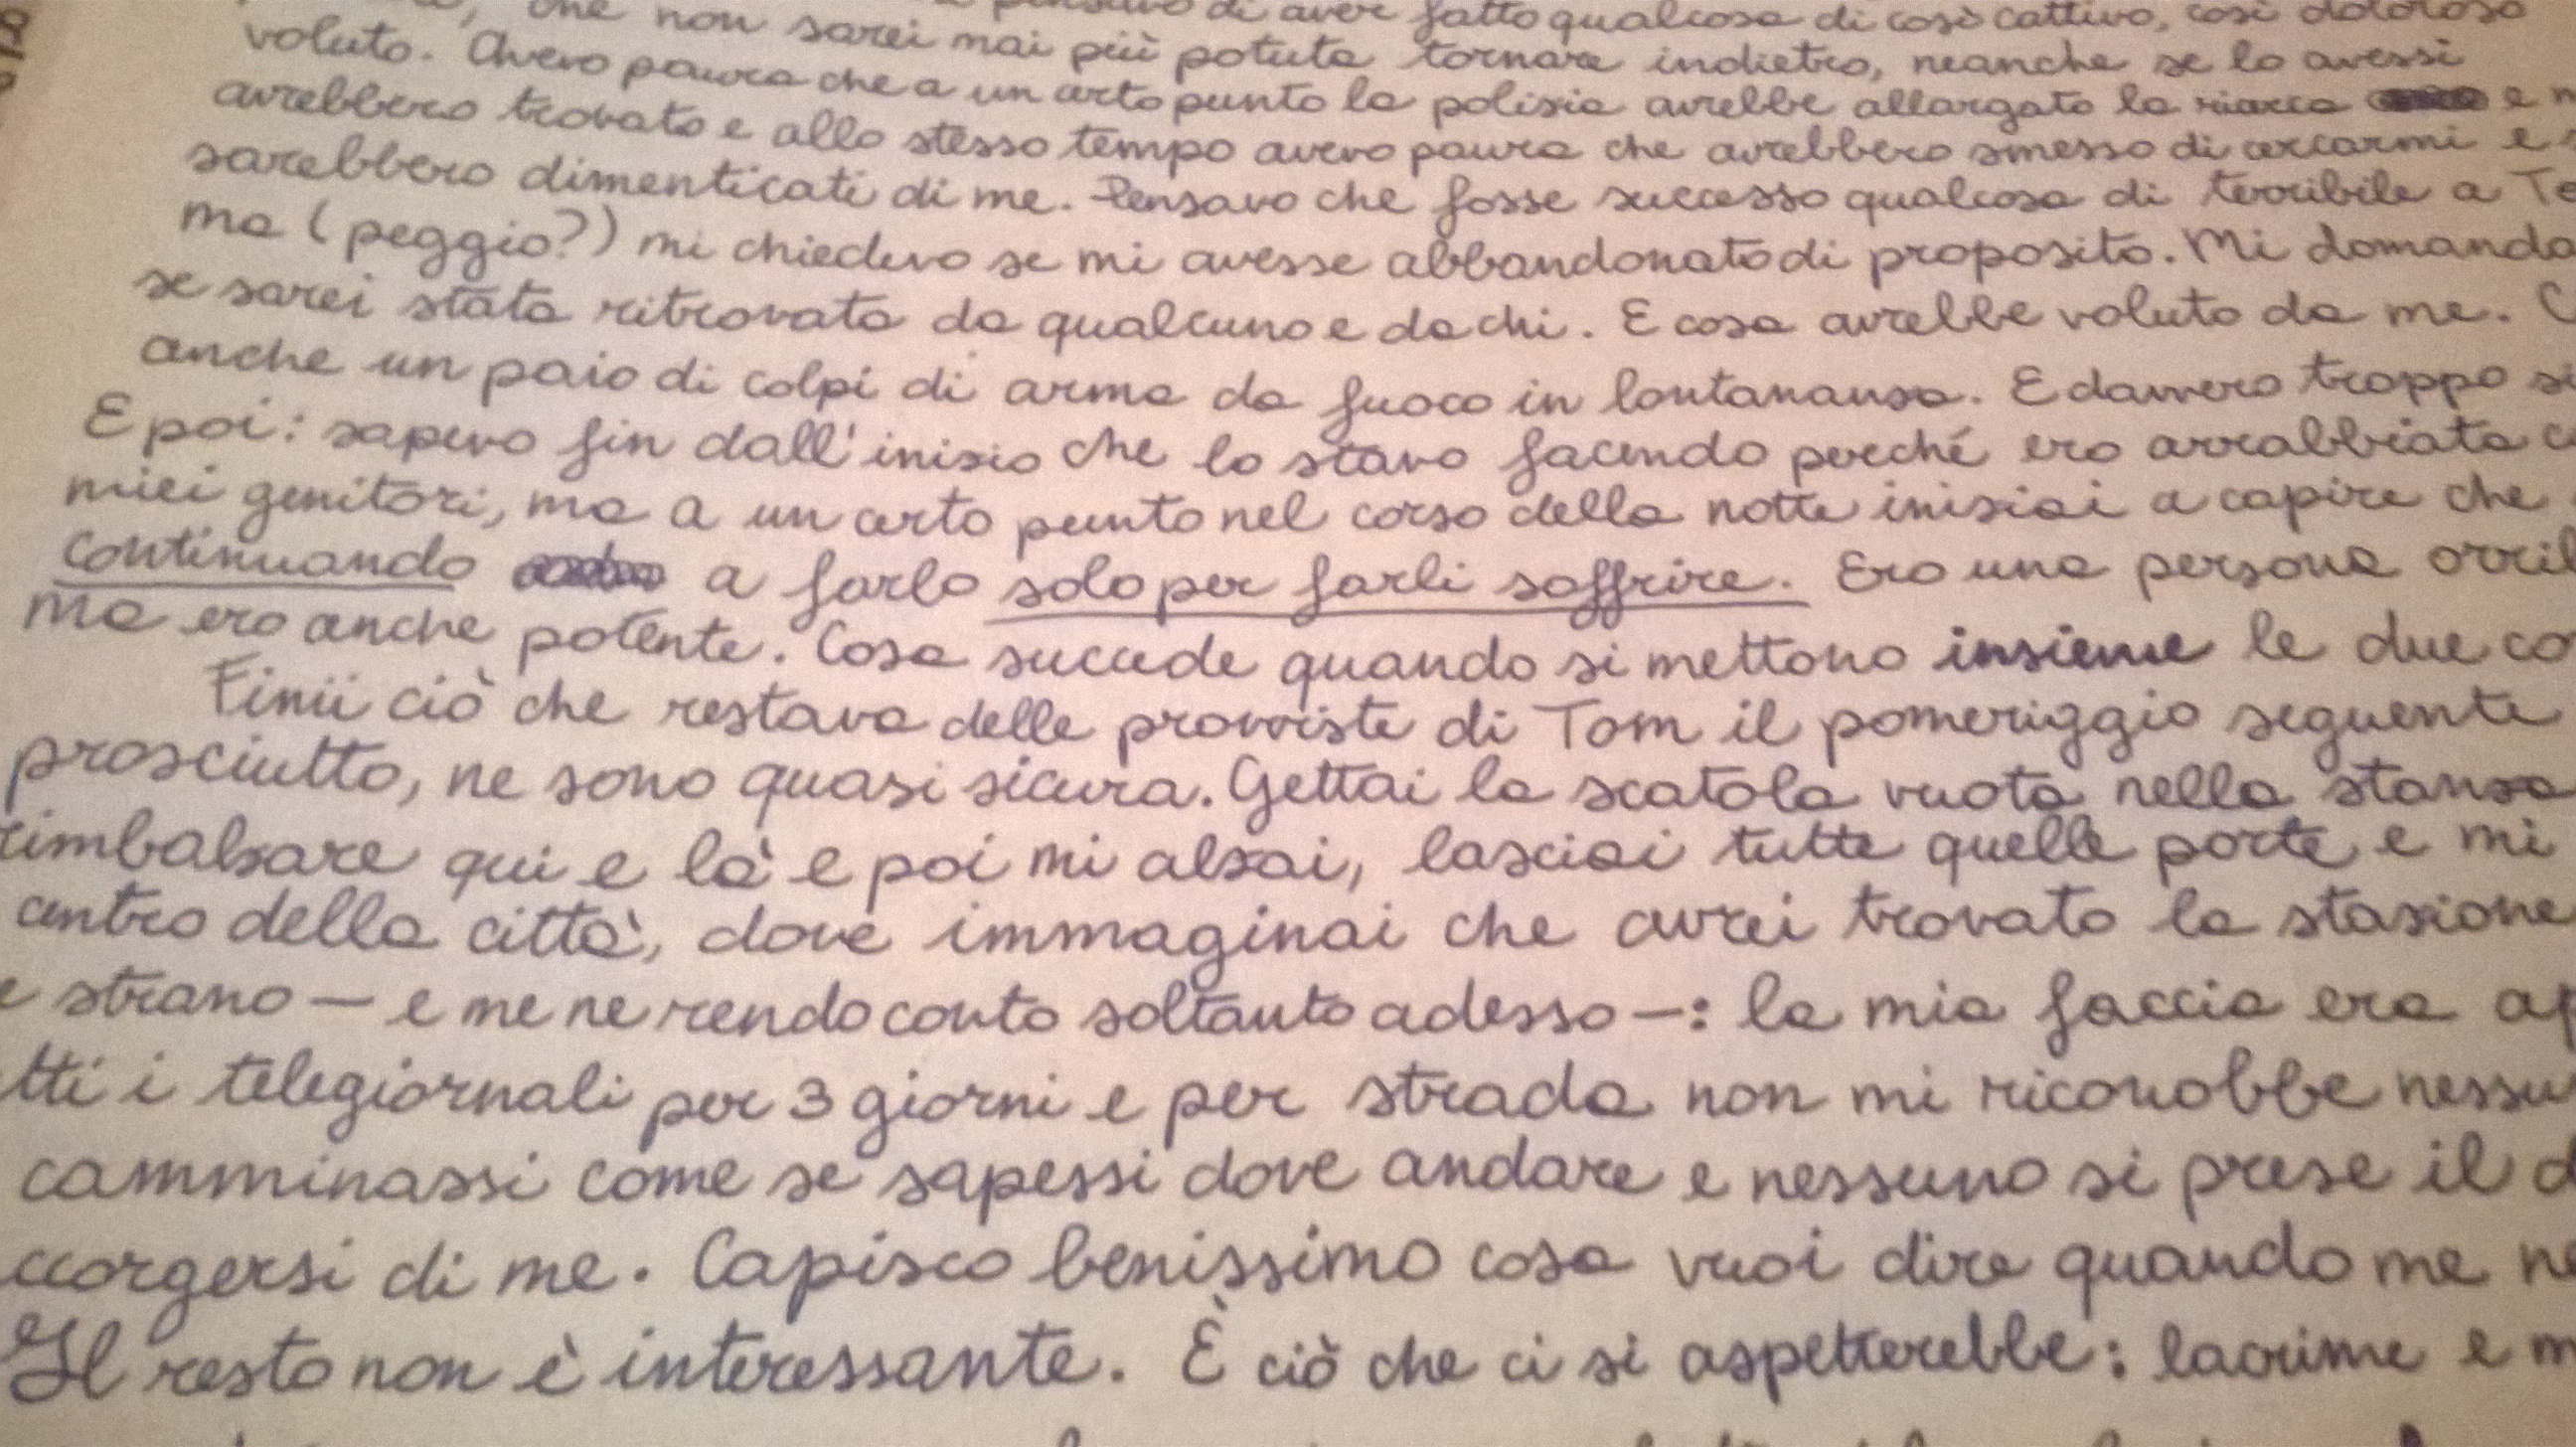 di aver fatto qualcosa di così cattivo, così doloroso
che non sarei mai più potuta tornare indietro, neanche se lo avessi
voluto. Avevo paura che a un certo punto la polizia avrebbe allargato la ricerca e
avrebbero trovato e allo stesso tempo avevo paura che avrebbero smesso di cercarmi e
sarebbero dimenticati di me. Pensavo che fosse successo qualcosa di terribile a
ma (peggio?) mi chiedevo se mi avesse abbandonato di proposito. Mi domanda
se sarei stata ritrovata da qualcuno e da chi. E cosa avrebbe voluto da me.
anche un paio di colpi di arma da fuoco in lontananza. E davvero troppo
E poi: sapevo fin dall'inizio che lo stavo facendo perché ero arrabbiata
miei genitori, ma a un certo punto nel corso della notte iniziai a capire che
continuando a farlo solo per farli soffrire. Ero una persona orril
ma ero anche potente. Cosa succede quando si mettono insieme le due co
Finii ciò che restava delle provviste di Tom il pomeriggio seguente
prosciutto, ne sono quasi sicura. Gettai la scatola vuota nella stanza
rimbalzare qui e là e poi mi alzai, lasciai tutte quelle porte e mi
centro della città, dove immaginai che avrei trovato la stazione
e strano — e me ne rendo conto soltanto adesso —: la mia faccia era ap
tti i telegiornali per 3 giorni e per strada non mi riconobbe nessu
camminassi come se sapessi dove andare e nessuno si prese il d
ccorgersi di me. Capisco benissimo cosa vuoi dire quando me ne
Il resto non è interessante. È ciò che ci si aspetterebbe: lacrime e m